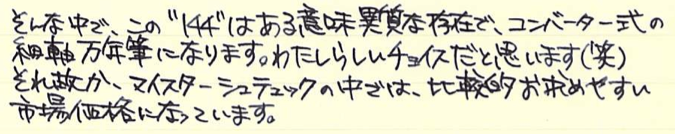 そんな中で、この"144"はある意味異質な存在で、コンバーター式の
細軸万年筆になります。わたしらしいチョイスだと思います(笑)
それ故か、マイスターシュテュックの中では、比較的お求めやすい
市場価格になっています。